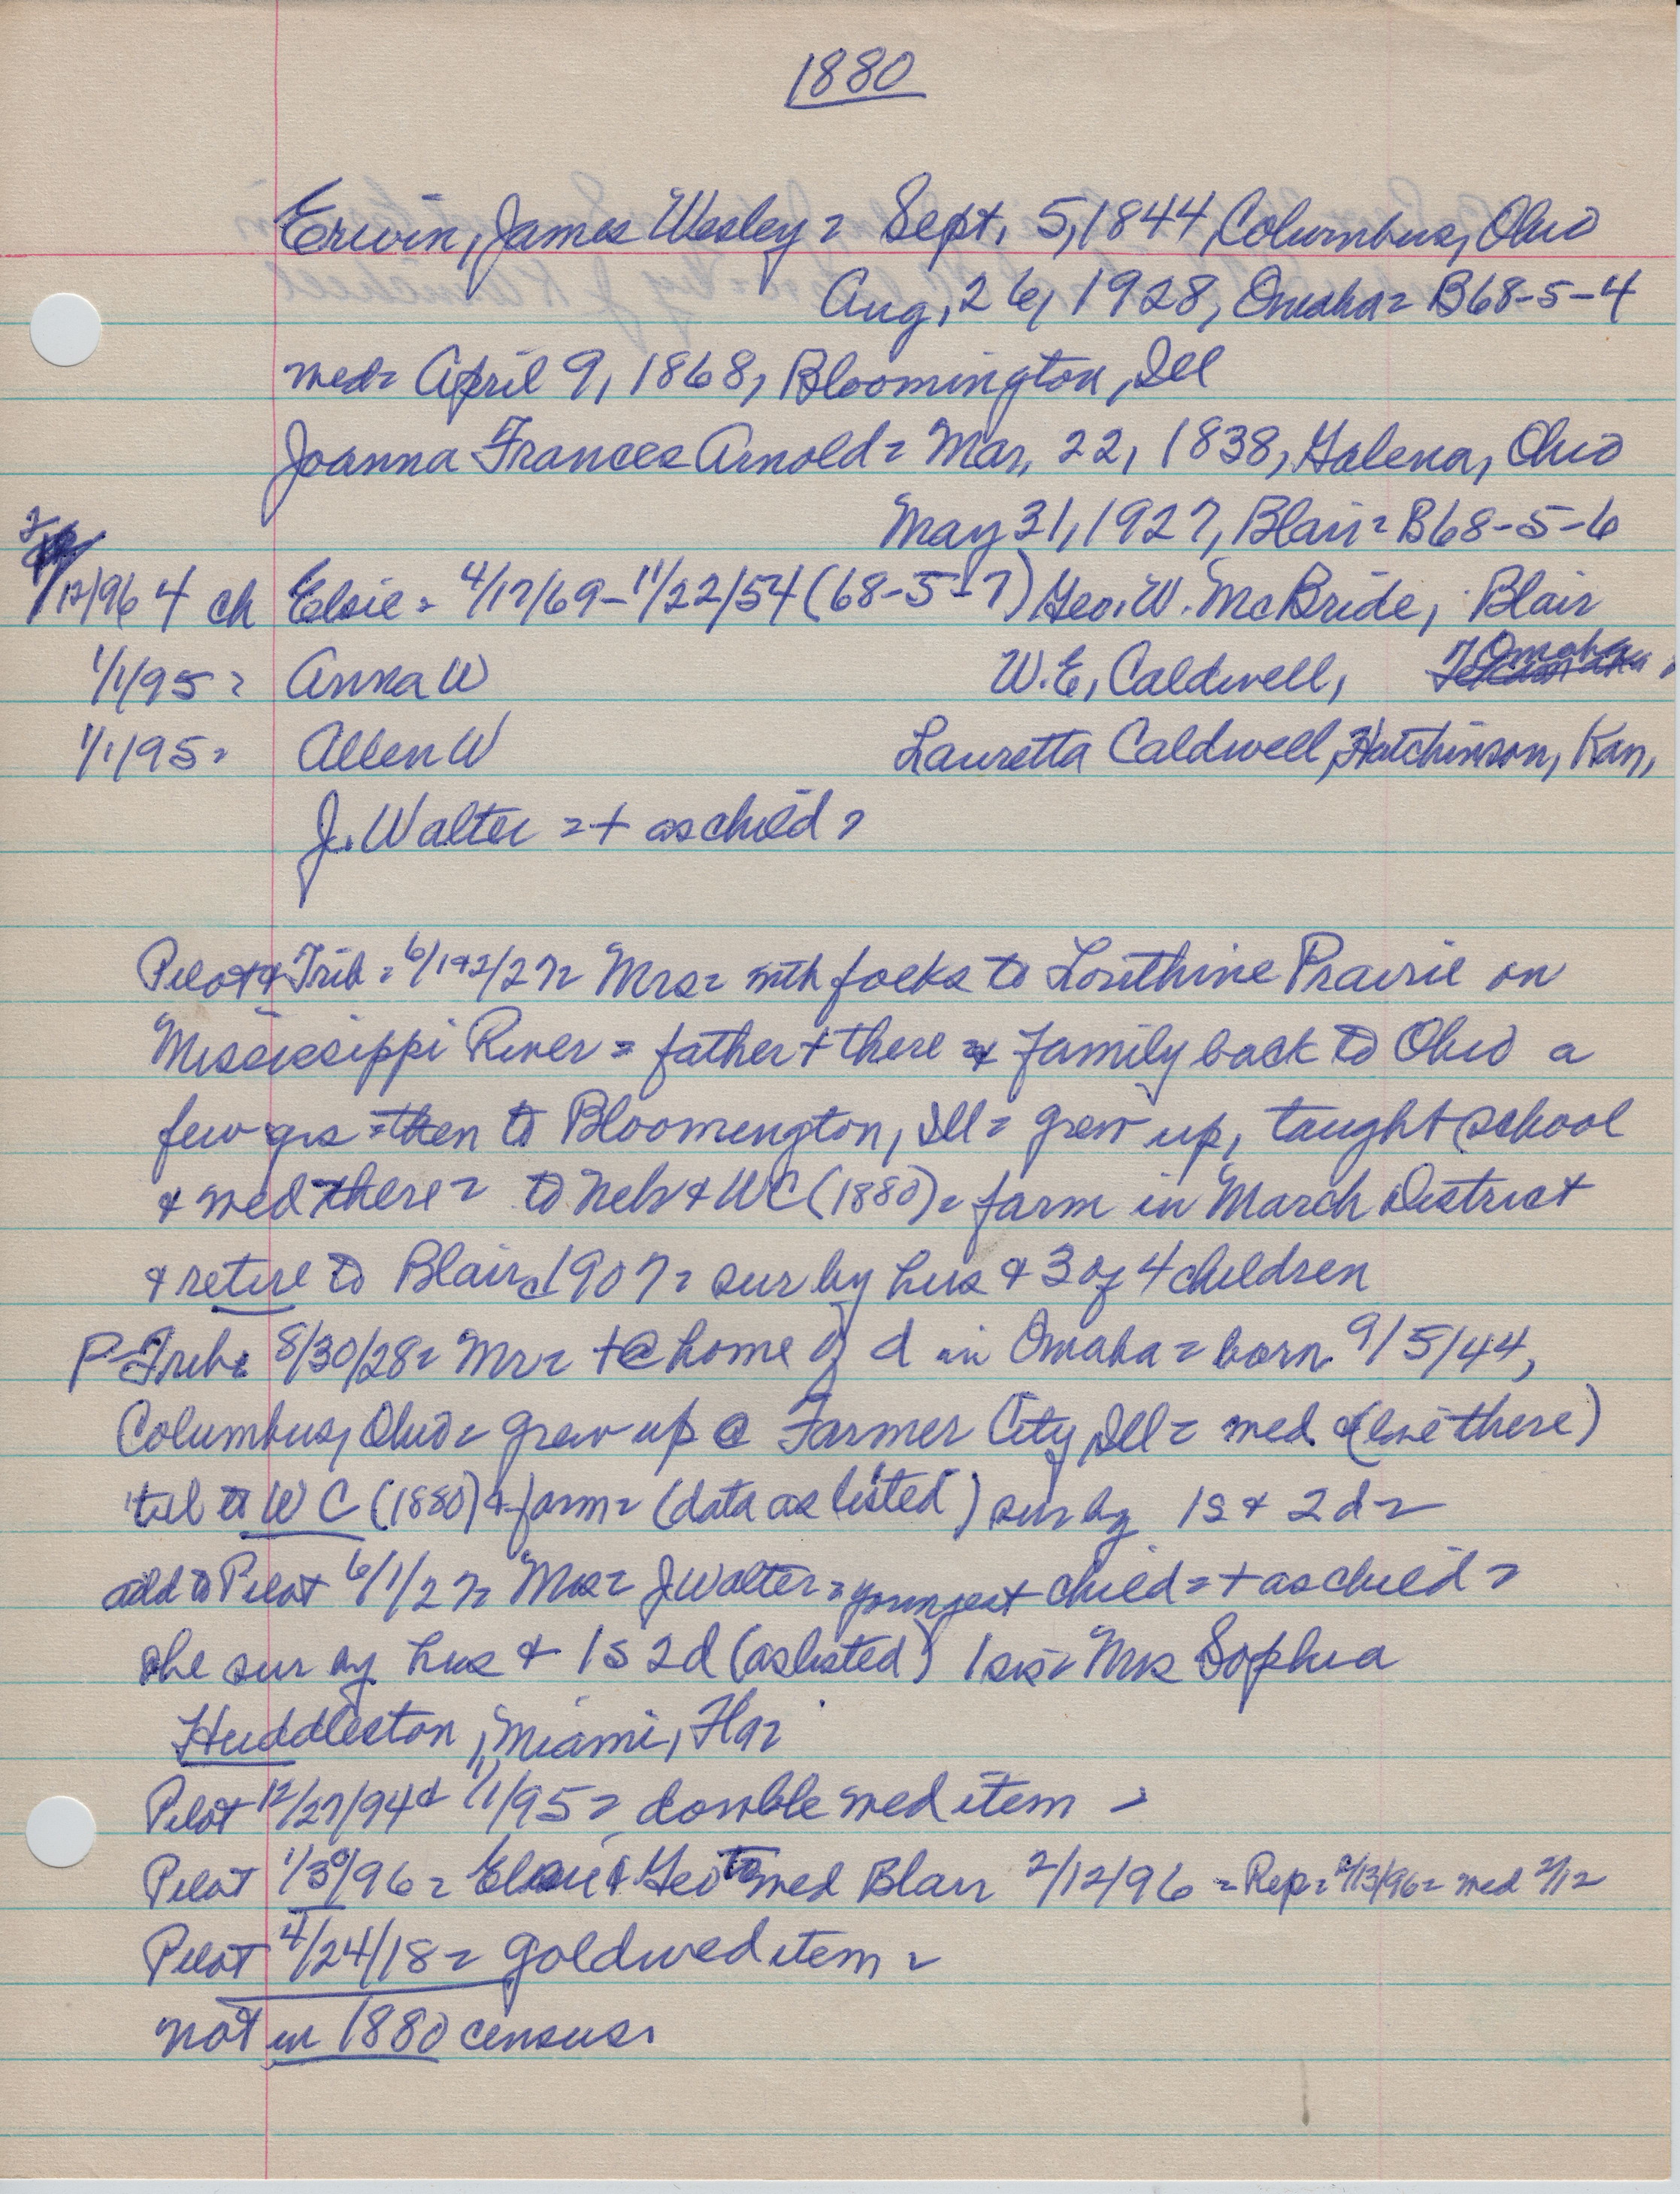 1880
Erwin, James Wesley = Sept. 5, 1844, Columbus, Ohio
Aug. 26, 1928, Omaha = B68-5-4
med = April 9, 1868, Bloomington, Ill
Joanna Frances Arnold = Mar. 22, 1838, Galena, Ohio
May 31, 1927, Blair = B68-5-6
2/12/96 4 ch Elsie = 4/17/69 - 11/22/54 (68-5-7) Geo. W. McBride, Blair
1/1/95 = Anna W W. E. Caldwell, Omaha
1/1/95 = Allen W Lauretta Caldwell, Hutchinson, Kan.
J. Walter = + as child =
Pilot & Trib = 6/1+2/27 = Mrs = with folks to Prairie on
Mississippi River = father + there = & family back to Ohio a
few yrs = then to Bloomington, Ill = grew up, taught school
& med there = to Neb & WC (1880) = farm in March District
& retire to Blair c1907 = sur by hus & 3 of 4 children
P-Trib = 8/30/28 = Mr = + @ home of d in Omaha = born 9/5/44,
Columbus, Ohio = grew up @ Farmer City, Ill = med & (live there)
'til to WC (1880) & farm = (data as listed) sur by 1s & 2d =
add to Pilot 6/1/27 = Mrs = J Walter = youngest child = + as child =
she sur by hus & 1s 2d (as listed) 1 sis = Mrs Sophia
Huddleston, Miami, Fla =
Pilot 12/27/94 & 1/1/95 = double wed item =
Pilot 1/30/96 = Elsie & Geo med Blair 2/12/96 = Rep = 2/13/96 = med 2/12
Pilot 4/24/18 = gold wed item =
not in 1880 census.